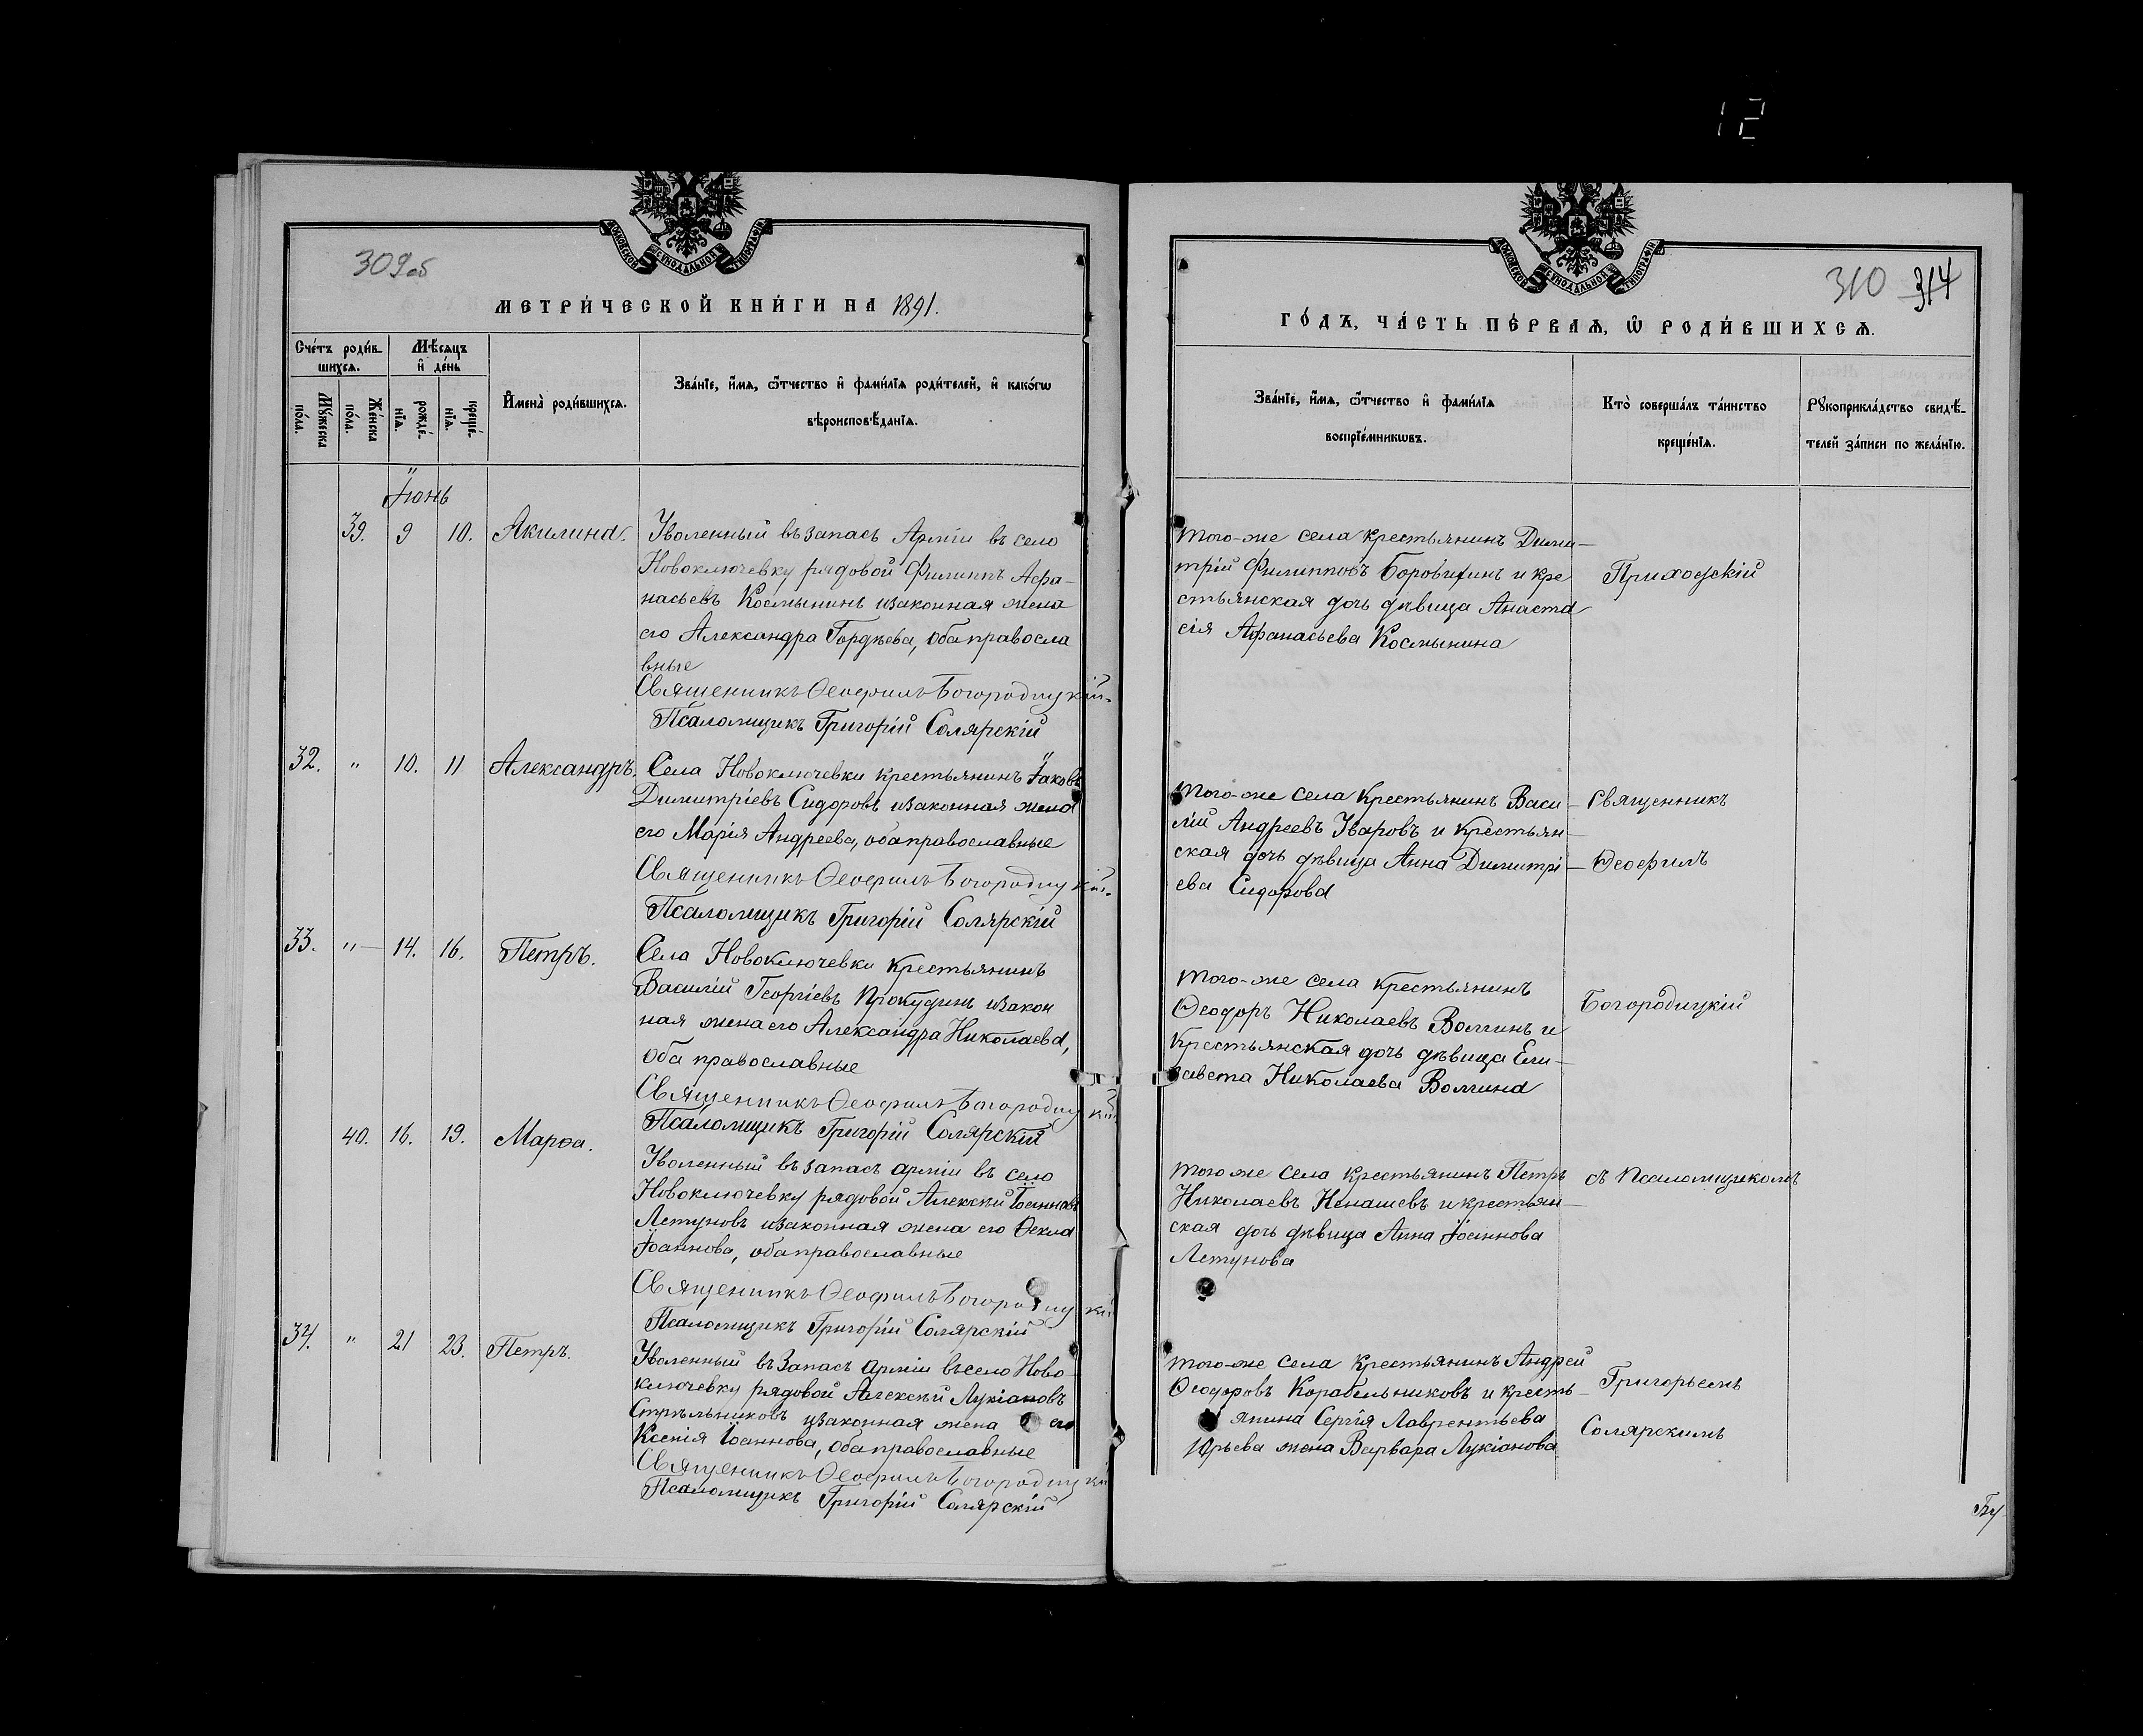 12
МОСКОВСКОЙ СѴНОДАЛЬНОЙ ТИПОГРАФІИ.
309об
МЕТРИ́ЧЕСКОЙ КНИ́ГИ НА 1891.
Сче́тъ роди́в-
шихсѧ.
Мѣ́сѧцъ
и҆ де́нь
Мꙋ́жеска
по́ла.
Же́нска
по́ла.
рожде́-
нїѧ.
креще́-
нїѧ.
И҆мена̀ роди́вшихсѧ.
Зва́нїе, и҆́мѧ, ѻ҆́тчество и҆ фами́лїѧ роди́телей, и҆ како́гѡ
вѣроисповѣ́данїѧ.
Іюнь
39. 9 10. Акилина. Уволенный въ запасъ Арміи въ село
Новоключевку рядовой Филиппъ Афа-
насьевъ Космынинъ и законная жена
его Александра Гордѣева, оба правосла
вные
Священникъ Ѳеофилъ Богородицкій.
Псаломщикъ Григорій Солярскій
32. " 10. 11 Александръ. Села Новоключевки крестьянинъ Іаковъ
Димитріевъ Сидоровъ и законная жена
его Марія Андреева, оба православные
Священникъ Ѳеофилъ Богородицкій.
Псаломщикъ Григорій Солярскій
33. " 14. 16. Петръ. Села Новоключевки крестьянинъ
Василій Георгіевъ Прокудинъ и закон
ная жена его Александра Николаева,
оба православные
Священникъ Ѳеофилъ Богородицкій
Псаломщикъ Григорій Солярскій
40. 16. 19. Марѳа.
Уволенный въ запасъ арміи въ село
Новоключевку рядовой Алексѣй Іоанновъ
Летуновъ и законная жена его Ѳекла
Іоаннова, оба православные
Священникъ Ѳеофилъ Богородицкій
Псаломщикъ Григорій Солярскій
34. " 21 23. Петръ.
Уволенный въ Запасъ арміи въ село Ново-
ключевку рядовой Алексѣй Лукіановъ
Стрѣльниковъ и законная жена его
Ксенія Іоаннова, оба православные
Священникъ Ѳеофилъ Богородицкій
Псаломщикъ Григорій Солярскій
МОСКОВСКОЙ СѴНОДАЛЬНОЙ ТИПОГРАФІИ.
310 314
ГО́ДЪ, ЧА́СТЬ ПЕ́РВАѦ, Ѡ҆ РОДИ́ВШИХСѦ.
Зва́нїе, и҆́мѧ, ѻ҆́тчество и҆ фами́лїѧ
воспрїе́мникѡвъ.
Кто̀ соверша́лъ та́инство
креще́нїѧ.
Рꙋкоприкла́дство свидѣ́-
телей за́писи по жела́нїю.
того-же села крестьянинъ Дими-
трій Филипповъ Боровитинъ и кре
стьянская дочь дѣвица Анаста
сія Афанасьева Космынина
Приходскій
того-же села крестьянинъ Васи-
лій Андреевъ Уваровъ и крестьян-
ская дочь дѣвица Анна Димитрі-
ева Сидорова
Священникъ
Ѳеофилъ
того-же села крестьянинъ
Ѳеодоръ Николаевъ Волгинъ и
крестьянская дочь дѣвица Ели-
завета Николаева Волгина
Богородицкій
того же села крестьянинъ Петръ
Николаевъ Ненашевъ и крестьян-
ская дочь дѣвица Анна Іоаннова
Летунова
съ псаломщикомъ
того-же села крестьянинъ Андрей
Ѳеодоровъ Корабельниковъ и кресть-
янина Сергія Лаврентьева
Юрьева жена Варвара Лукіанова
Григорьемъ
Солярскимъ